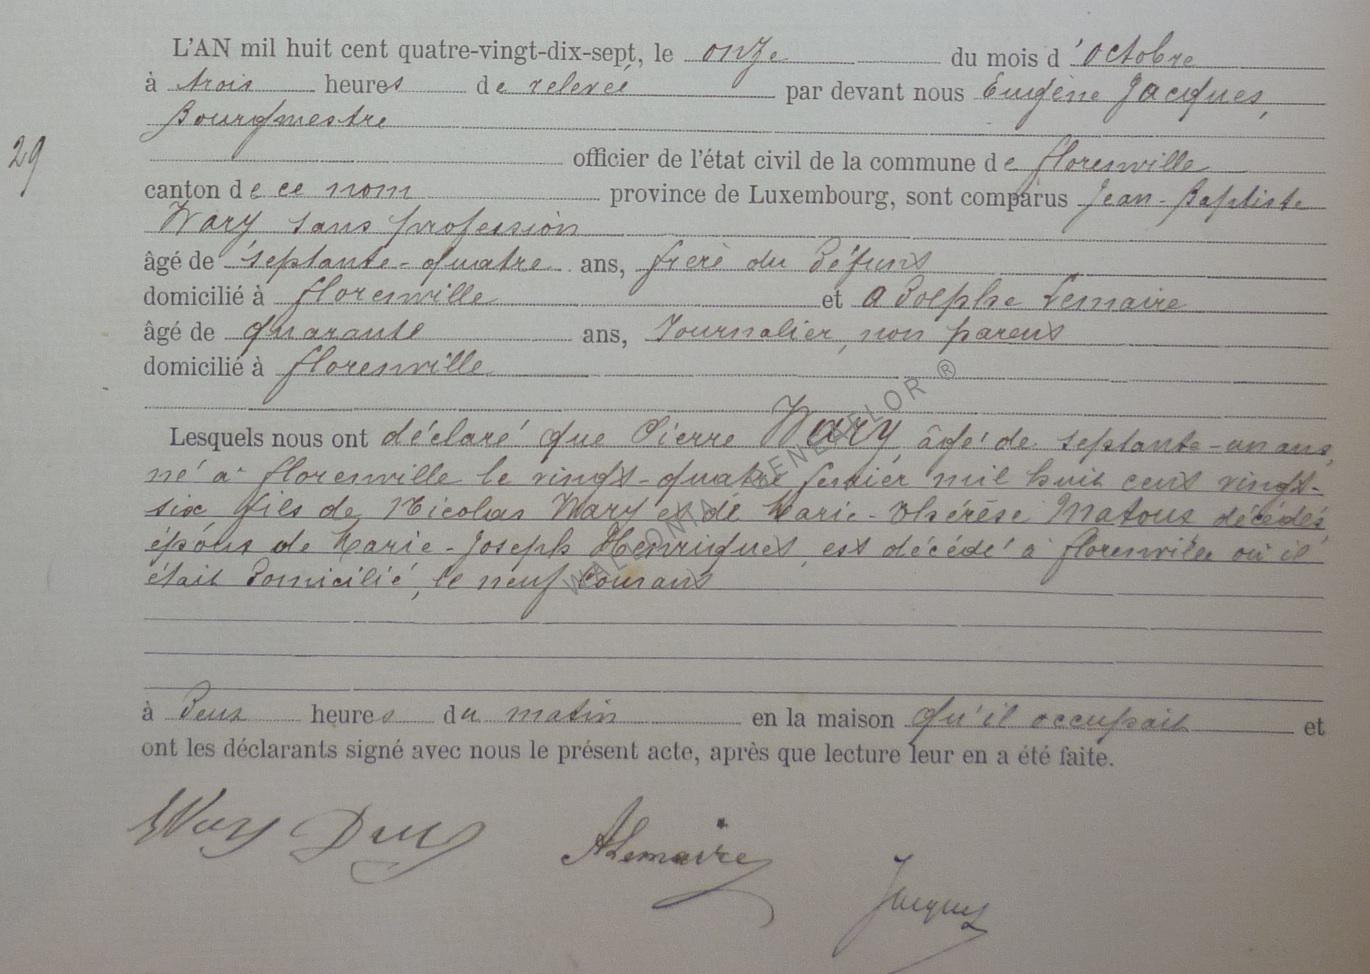 L'AN mil huit cent quatre-vingt-dix-sept, le onze du mois d'octobre
à trois heures de relevée par devant nous Eugène Jacques,
Bourgmestre
29
officier de l'état civil de la commune de florenville
canton de ce nom province de Luxembourg, sont comparus Jean-Baptiste
Wary sans profession
âgé de septante-quatre ans, frère du défunt
domicilié à florenville et Adolphe Lemaire
âgé de quarante ans, Journalier, non parent
domicilié à florenville
Lesquels nous ont déclaré que Pierre Wary, âgé de septante-un ans,
né à florenville le vingt-quatre février mil huit cent vingt-
six fils de Nicolas Wary et de Marie-Thérèse Matout décédés,
époux de Marie-Joseph Henriquet, est décédé à florenville où il
était domicilié, le neuf courant
à deux heures du matin en la maison qu'il occupait et
ont les déclarants signé avec nous le présent acte, après que lecture leur en a été faite.
Wary
ALemaire
Jacques
WALLONIA GENEDELOR ®